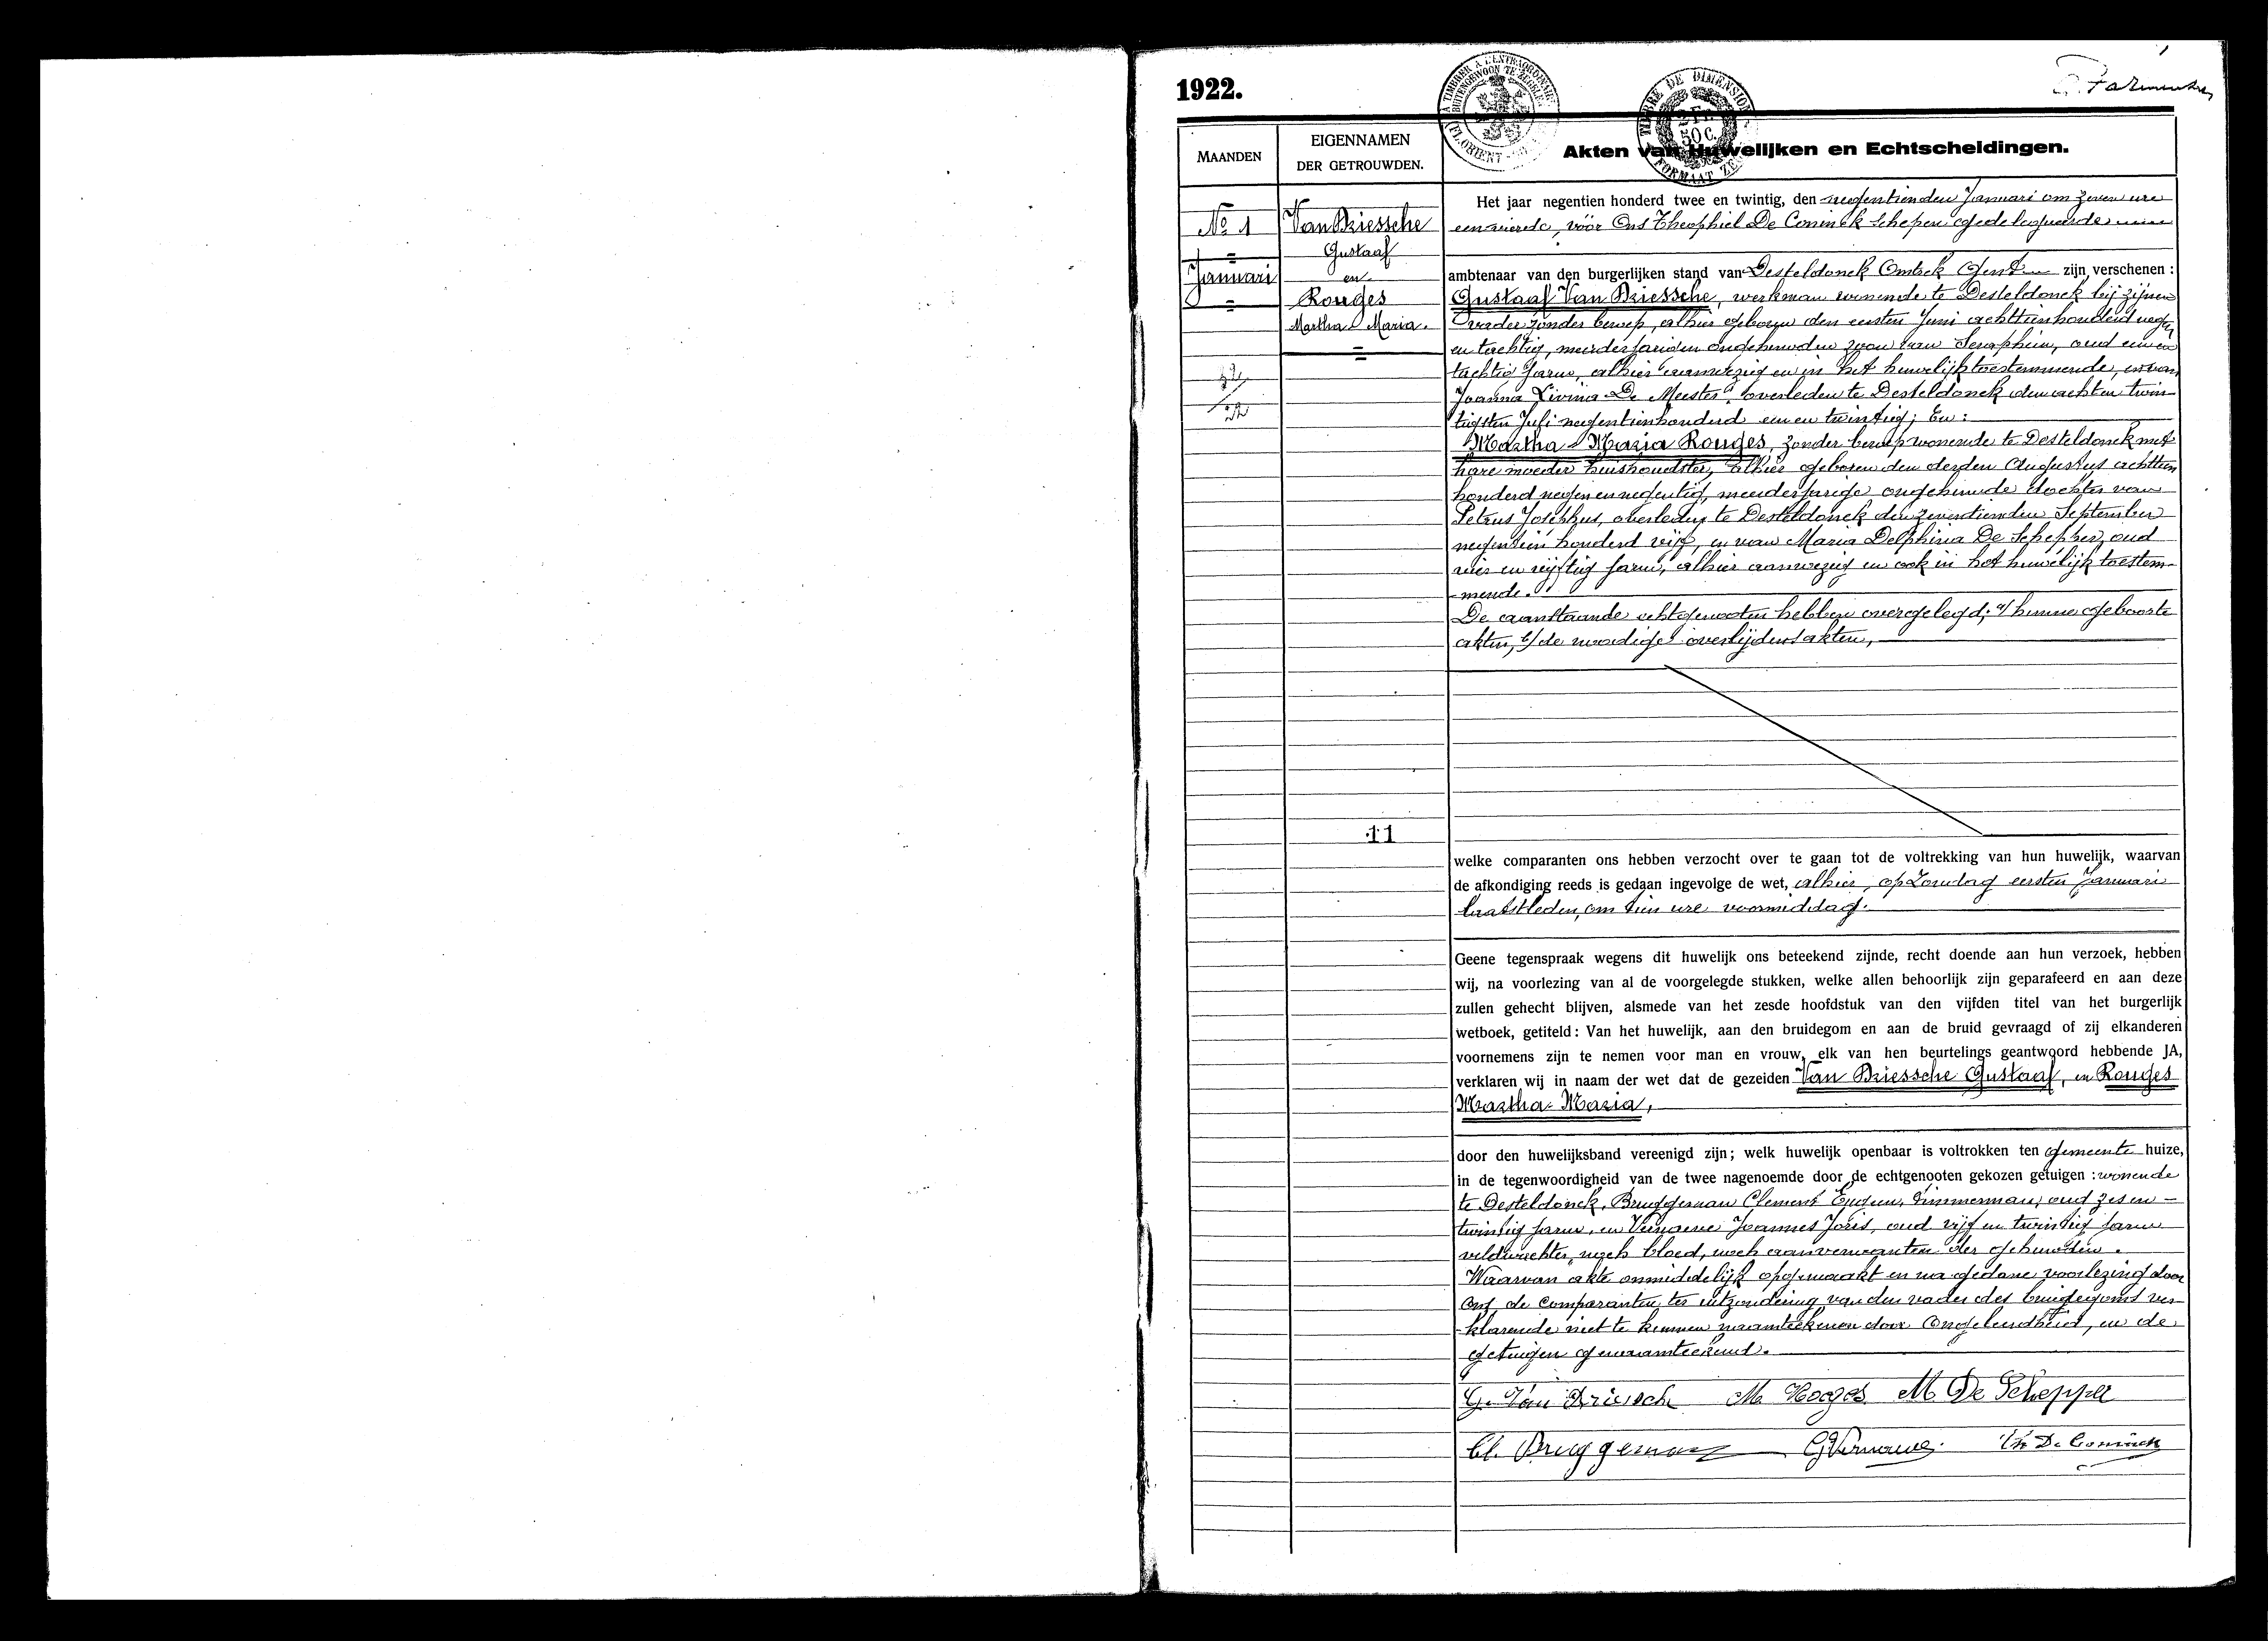 1922.
MAANDEN
EIGENNAMEN
DER GETROUWDEN.
Akten van Huwelijken en Echtscheidingen.
TIMBRE DE DIMENSION
50 C.
No 1
Januari
Van Driessche
Gustaaf
en
Rouges
Martha-Maria.
Het jaar negentien honderd twee en twintig, den negentienden Januari om zeven ure
een vierde, vóór Ons Theophiel De Coninck schepen gedelegueerde
ambtenaar van den burgerlijken stand van Desteldonck Omtrek Gent zijn verschenen :
Gustaaf Van Driessche, werkman wonende te Desteldonck bij zijnen
vader zonder beroep, alhier geboren den eersten Juni achttienhonderd negen
en tachtig, meerderjarigen ongehuwden zoon van Seraphin, oud een en
tachtig jaren, alhier aanwezig en in het huwelijk toestemmende, en van
Joanna Livina De Meester, overleden te Desteldonck den achten twin-
tigsten Juli negentienhonderd een en twintig; En :
Martha-Maria Rouges, zonder beroep wonende te Desteldonck met
hare moeder huishoudster, alhier geboren den derden Augustus achttien
honderd negen en negentig, meerderjarige ongehuwde dochter van
Petrus Josephus, overleden te Desteldonck den zeventienden September
negentien honderd vijf, en van Maria Delphina De Schepper, oud
vier en vijftig jaren, alhier aanwezig en ook in het huwelijk toestem-
mende.
De aanstaande echtgenooten hebben overgelegd; a/ hunne geboorte
akten, b/ de noodige overlijdensakten,
11
welke comparanten ons hebben verzocht over te gaan tot de voltrekking van hun huwelijk, waarvan
de afkondiging reeds is gedaan ingevolge de wet, alhier, op Zondag eersten Januari
laatstleden, om tien ure voormiddag.
Geene tegenspraak wegens dit huwelijk ons beteekend zijnde, recht doende aan hun verzoek, hebben
wij, na voorlezing van al de voorgelegde stukken, welke allen behoorlijk zijn geparafeerd en aan deze
zullen gehecht blijven, alsmede van het zesde hoofdstuk van den vijfden titel van het burgerlijk
wetboek, getiteld : Van het huwelijk, aan den bruidegom en aan de bruid gevraagd of zij elkanderen
voornemens zijn te nemen voor man en vrouw, elk van hen beurtelings geantwoord hebbende JA,
verklaren wij in naam der wet dat de gezeiden Van Driessche Gustaaf, en Rouges
Martha-Maria,
door den huwelijksband vereenigd zijn ; welk huwelijk openbaar is voltrokken ten gemeente huize,
in de tegenwoordigheid van de twee nagenoemde door de echtgenooten gekozen getuigen : wonende
te Desteldonck, Bruggeman Clement Eugeen, timmerman, oud zes en
twintig jaren, en Joannes Joris, oud vijf en twintig jaren
veldwachter, noch bloed, noch aanverwanten der gehuwden.
Waarvan akte onmiddelijk opgemaakt en na gedane voorlezing door
Ons, de comparanten, ter uitzondering van den vader des bruidegoms ver-
klarende niet te kunnen naamteekenen door ongeleerdheid, en de
getuigen genaamteekend.
G. Van Driessche M Rooges M De Schepper
Cl. Bruggeman Th De Coninck